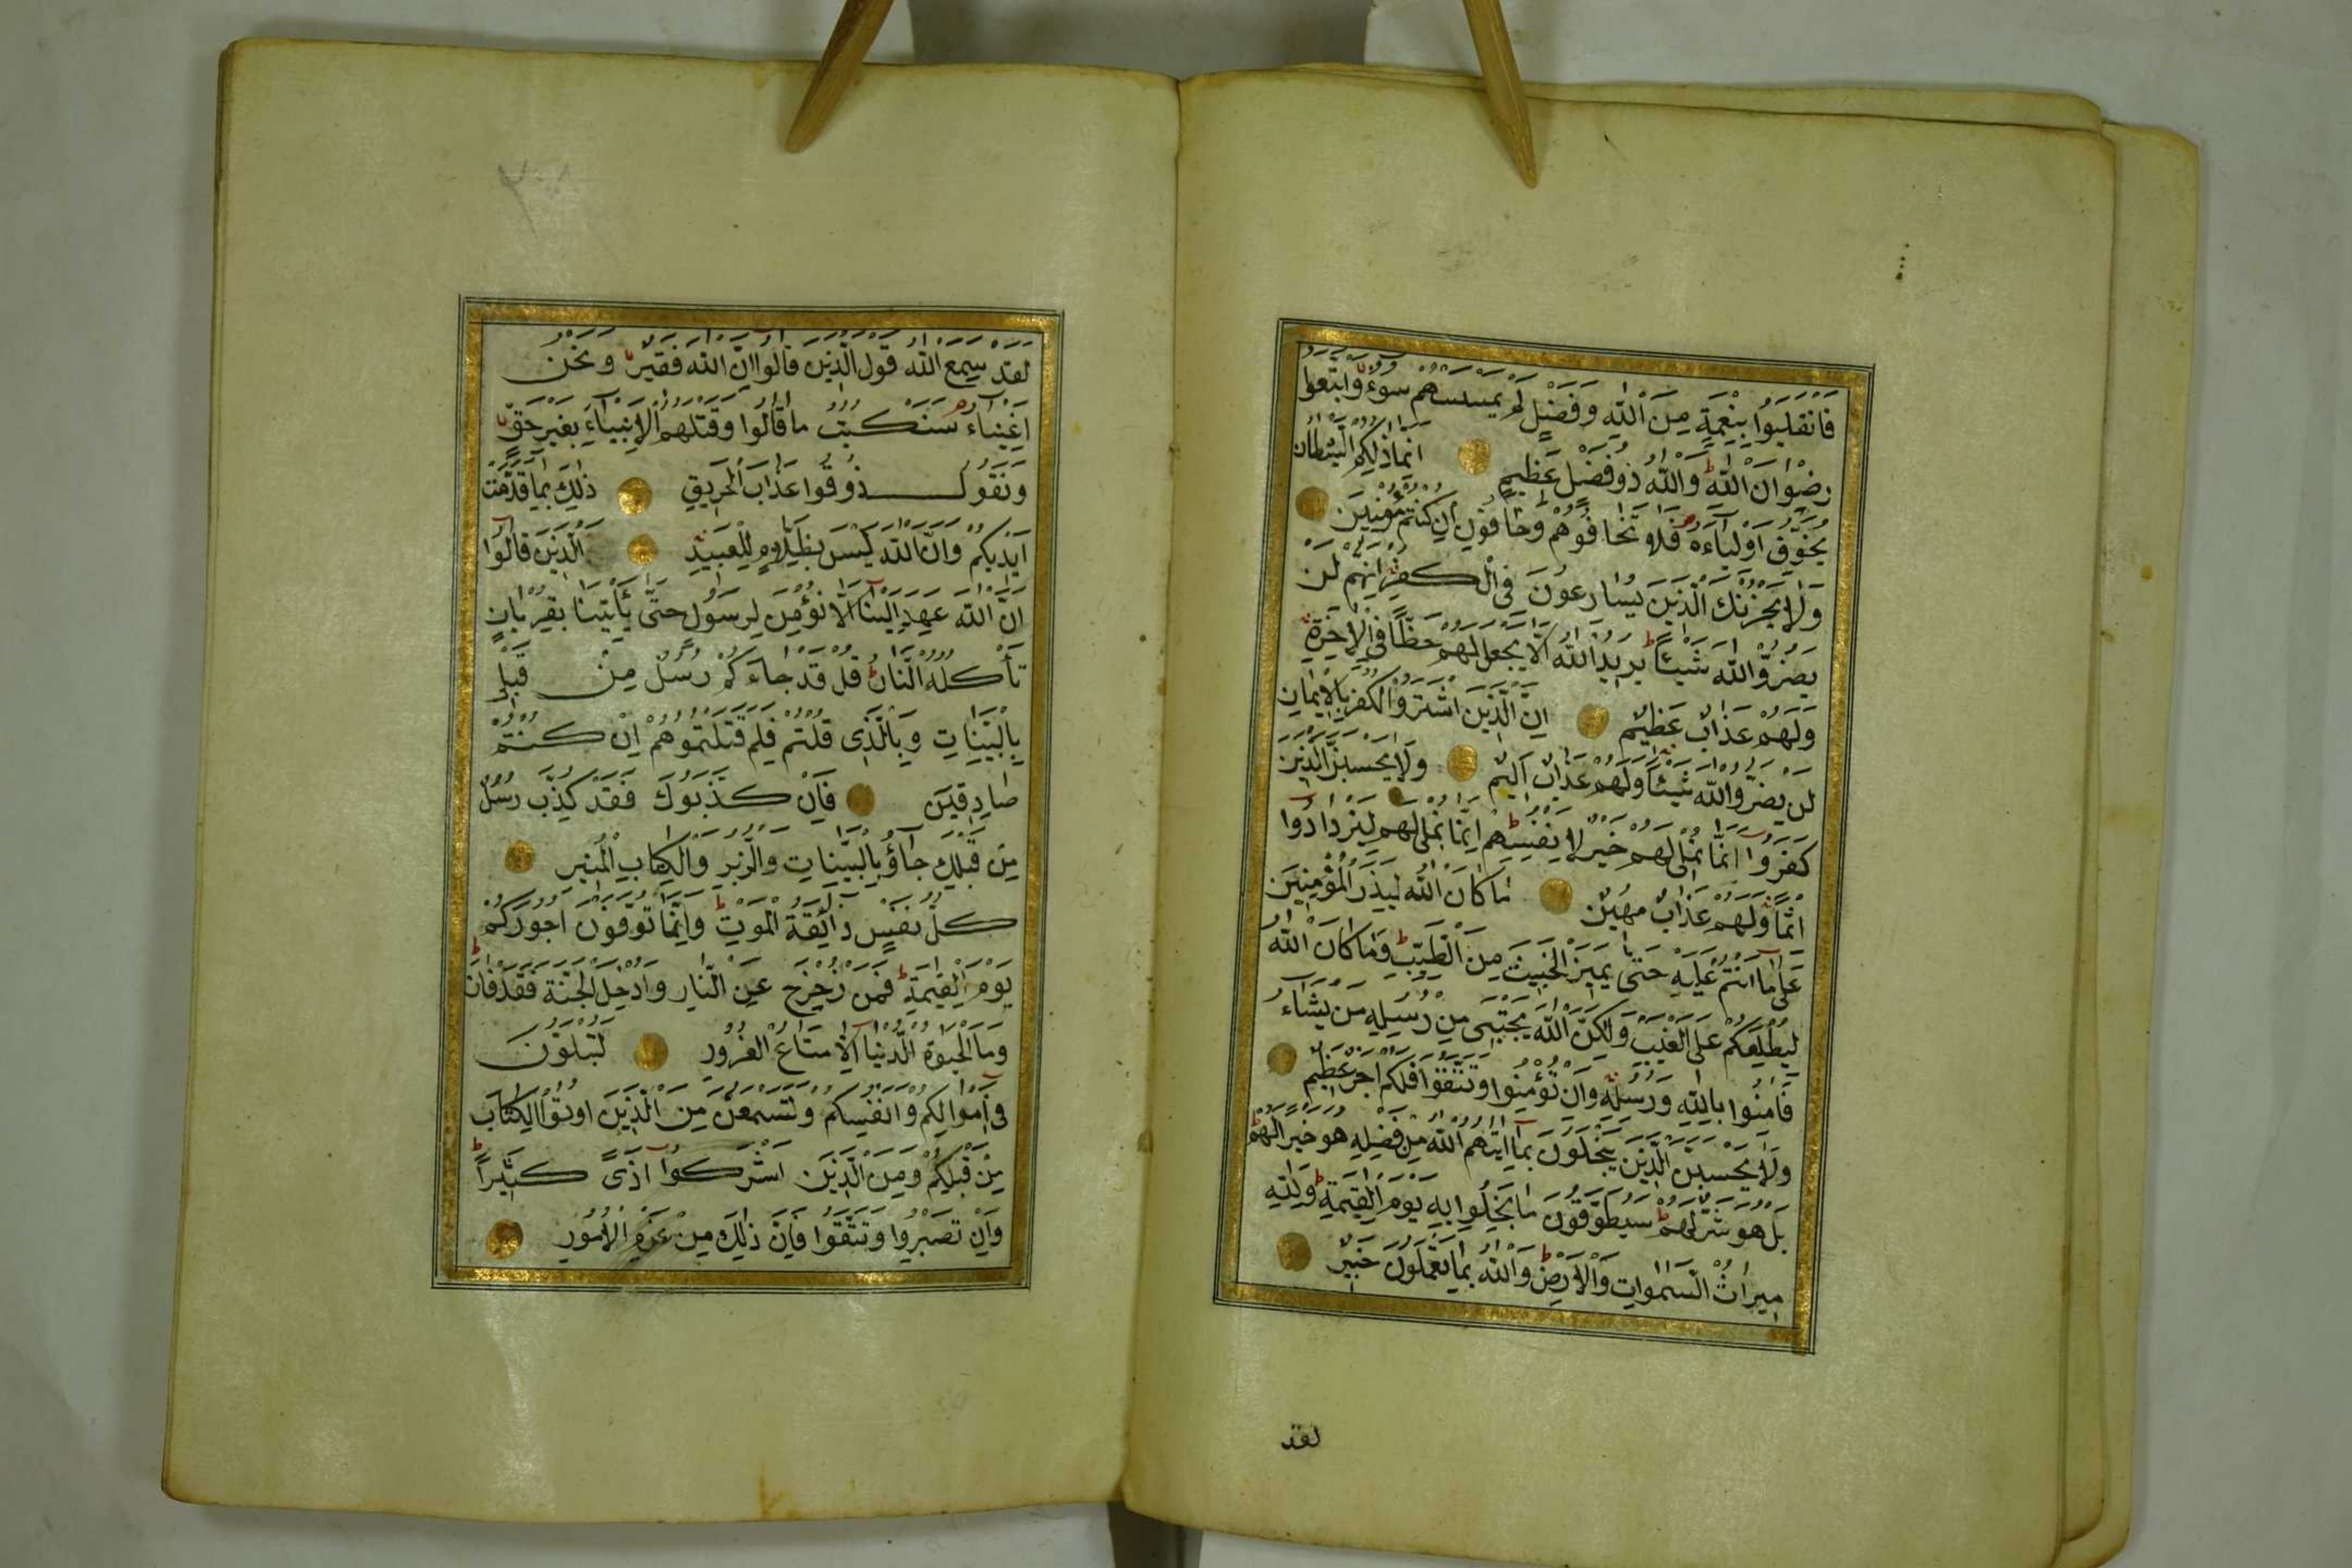 فَانْقَلَبُوا بِنِعْمَةٍ مِنَ اللّٰهِ وَفَضْلٍ لَمْ يَمْسَسْهُمْ سُوءٌ وَاتَّبَعُوا
رِضْوَانَ اللّٰهِ ط وَاللّٰهُ ذُو فَضْلٍ عَظِيمٍ اِنَّمَا ذٰلِكُمُ الشَّيْطَانُ
يُخَوِّفُ اَوْلِيَاءَهُ ص فَلَا تَخَافُوهُمْ وَخَافُونِ اِنْ كُنْتُمْ مُؤْمِنِينَ
وَلَا يَحْزُنْكَ الَّذِينَ يُسَارِعُونَ فِي الْكُفْرِ اِنَّهُمْ لَنْ
يَضُرُّوا اللّٰهَ شَيْئًا ط يُرِيدُ اللّٰهُ اَلَّا يَجْعَلَ لَهُمْ حَظًّا فِي الْاٰخِرَةِ
وَلَهُمْ عَذَابٌ عَظِيمٌ اِنَّ الَّذِينَ اشْتَرَوُا الْكُفْرَ بِالْاِيمَانِ
لَنْ يَضُرُّوا اللّٰهَ شَيْئًا وَلَهُمْ عَذَابٌ اَلِيمٌ وَلَا يَحْسَبَنَّ الَّذِينَ
كَفَرُوا اَنَّمَا نُمْلِي لَهُمْ خَيْرٌ لِاَنْفُسِهِمْ ط اِنَّمَا نُمْلِي لَهُمْ لِيَزْدَادُوا
اِثْمًا وَلَهُمْ عَذَابٌ مُهِينٌ مَا كَانَ اللّٰهُ لِيَذَرَ الْمُؤْمِنِينَ
عَلٰى مَا اَنْتُمْ عَلَيْهِ حَتّٰى يَمِيزَ الْخَبِيثَ مِنَ الطَّيِّبِ ط وَمَا كَانَ اللّٰهُ
لِيُطْلِعَكُمْ عَلَى الْغَيْبِ وَلٰكِنَّ اللّٰهَ يَجْتَبِي مِنْ رُسُلِهِ مَنْ يَشَاءُ
فَاٰمِنُوا بِاللّٰهِ وَرُسُلِهِ وَاِنْ تُؤْمِنُوا وَتَتَّقُوا فَلَكُمْ اَجْرٌ عَظِيمٌ
وَلَا يَحْسَبَنَّ الَّذِينَ يَبْخَلُونَ بِمَا اٰتٰيهُمُ اللّٰهُ مِنْ فَضْلِهِ هُوَ خَيْرًا لَهُمْ ط
بَلْ هُوَ شَرٌّ لَهُمْ ط سَيُطَوَّقُونَ مَا بَخِلُوا بِهِ يَوْمَ الْقِيٰمَةِ ط وَلِلّٰهِ
مِيرَاثُ السَّمٰوَاتِ وَالْاَرْضِ ط وَاللّٰهُ بِمَا تَعْمَلُونَ خَبِيرٌ
لقد
لَقَدْ سَمِعَ اللّٰهُ قَوْلَ الَّذِينَ قَالُوا اِنَّ اللّٰهَ فَقِيرٌ وَنَحْنُ
اَغْنِيَاءُ ص سَنَكْتُبُ مَا قَالُوا وَقَتْلَهُمُ الْاَنْبِيَاءَ بِغَيْرِ حَقٍّ
وَنَقُولُ ذُوقُوا عَذَابَ الْحَرِيقِ ذٰلِكَ بِمَا قَدَّمَتْ
اَيْدِيكُمْ وَاَنَّ اللّٰهَ لَيْسَ بِظَلَّامٍ لِلْعَبِيدِ اَلَّذِينَ قَالُوا
اِنَّ اللّٰهَ عَهِدَ اِلَيْنَا اَلَّا نُؤْمِنَ لِرَسُولٍ حَتّٰى يَأْتِيَنَا بِقُرْبَانٍ
تَأْكُلُهُ النَّارُ ط قُلْ قَدْ جَاءَكُمْ رُسُلٌ مِنْ قَبْلِي
بِالْبَيِّنَاتِ وَبِالَّذِي قُلْتُمْ فَلِمَ قَتَلْتُمُوهُمْ اِنْ كُنْتُمْ
صَادِقِينَ فَاِنْ كَذَّبُوكَ فَقَدْ كُذِّبَ رُسُلٌ
مِنْ قَبْلِكَ جَاؤُ بِالْبَيِّنَاتِ وَالزُّبُرِ وَالْكِتَابِ الْمُنِيرِ
كُلُّ نَفْسٍ ذَائِقَةُ الْمَوْتِ ط وَاِنَّمَا تُوَفَّوْنَ اُجُورَكُمْ
يَوْمَ الْقِيٰمَةِ ط فَمَنْ زُحْزِحَ عَنِ النَّارِ وَاُدْخِلَ الْجَنَّةَ فَقَدْ فَازَ ط
وَمَا الْحَيٰوةُ الدُّنْيَا اِلَّا مَتَاعُ الْغُرُورِ لَتُبْلَوُنَّ
فِي اَمْوَالِكُمْ وَاَنْفُسِكُمْ وَلَتَسْمَعُنَّ مِنَ الَّذِينَ اُوتُوا الْكِتَابَ
مِنْ قَبْلِكُمْ وَمِنَ الَّذِينَ اَشْرَكُوا اَذًى كَثِيرًا ط
وَاِنْ تَصْبِرُوا وَتَتَّقُوا فَاِنَّ ذٰلِكَ مِنْ عَزْمِ الْاُمُورِ